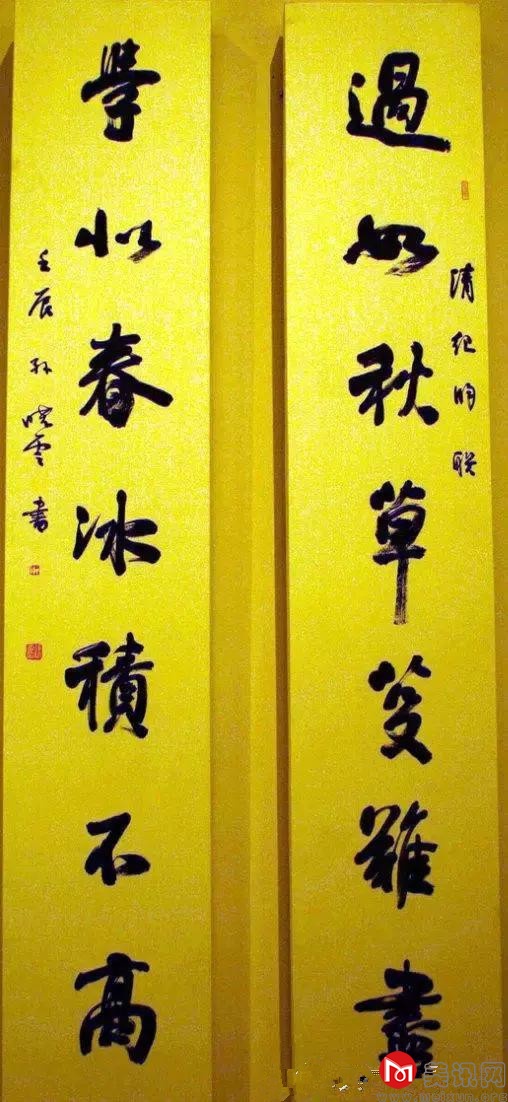 過如秋草芟難盡
清纪昀联
學似春冰積不高
壬辰孙晓雲书
美讯网